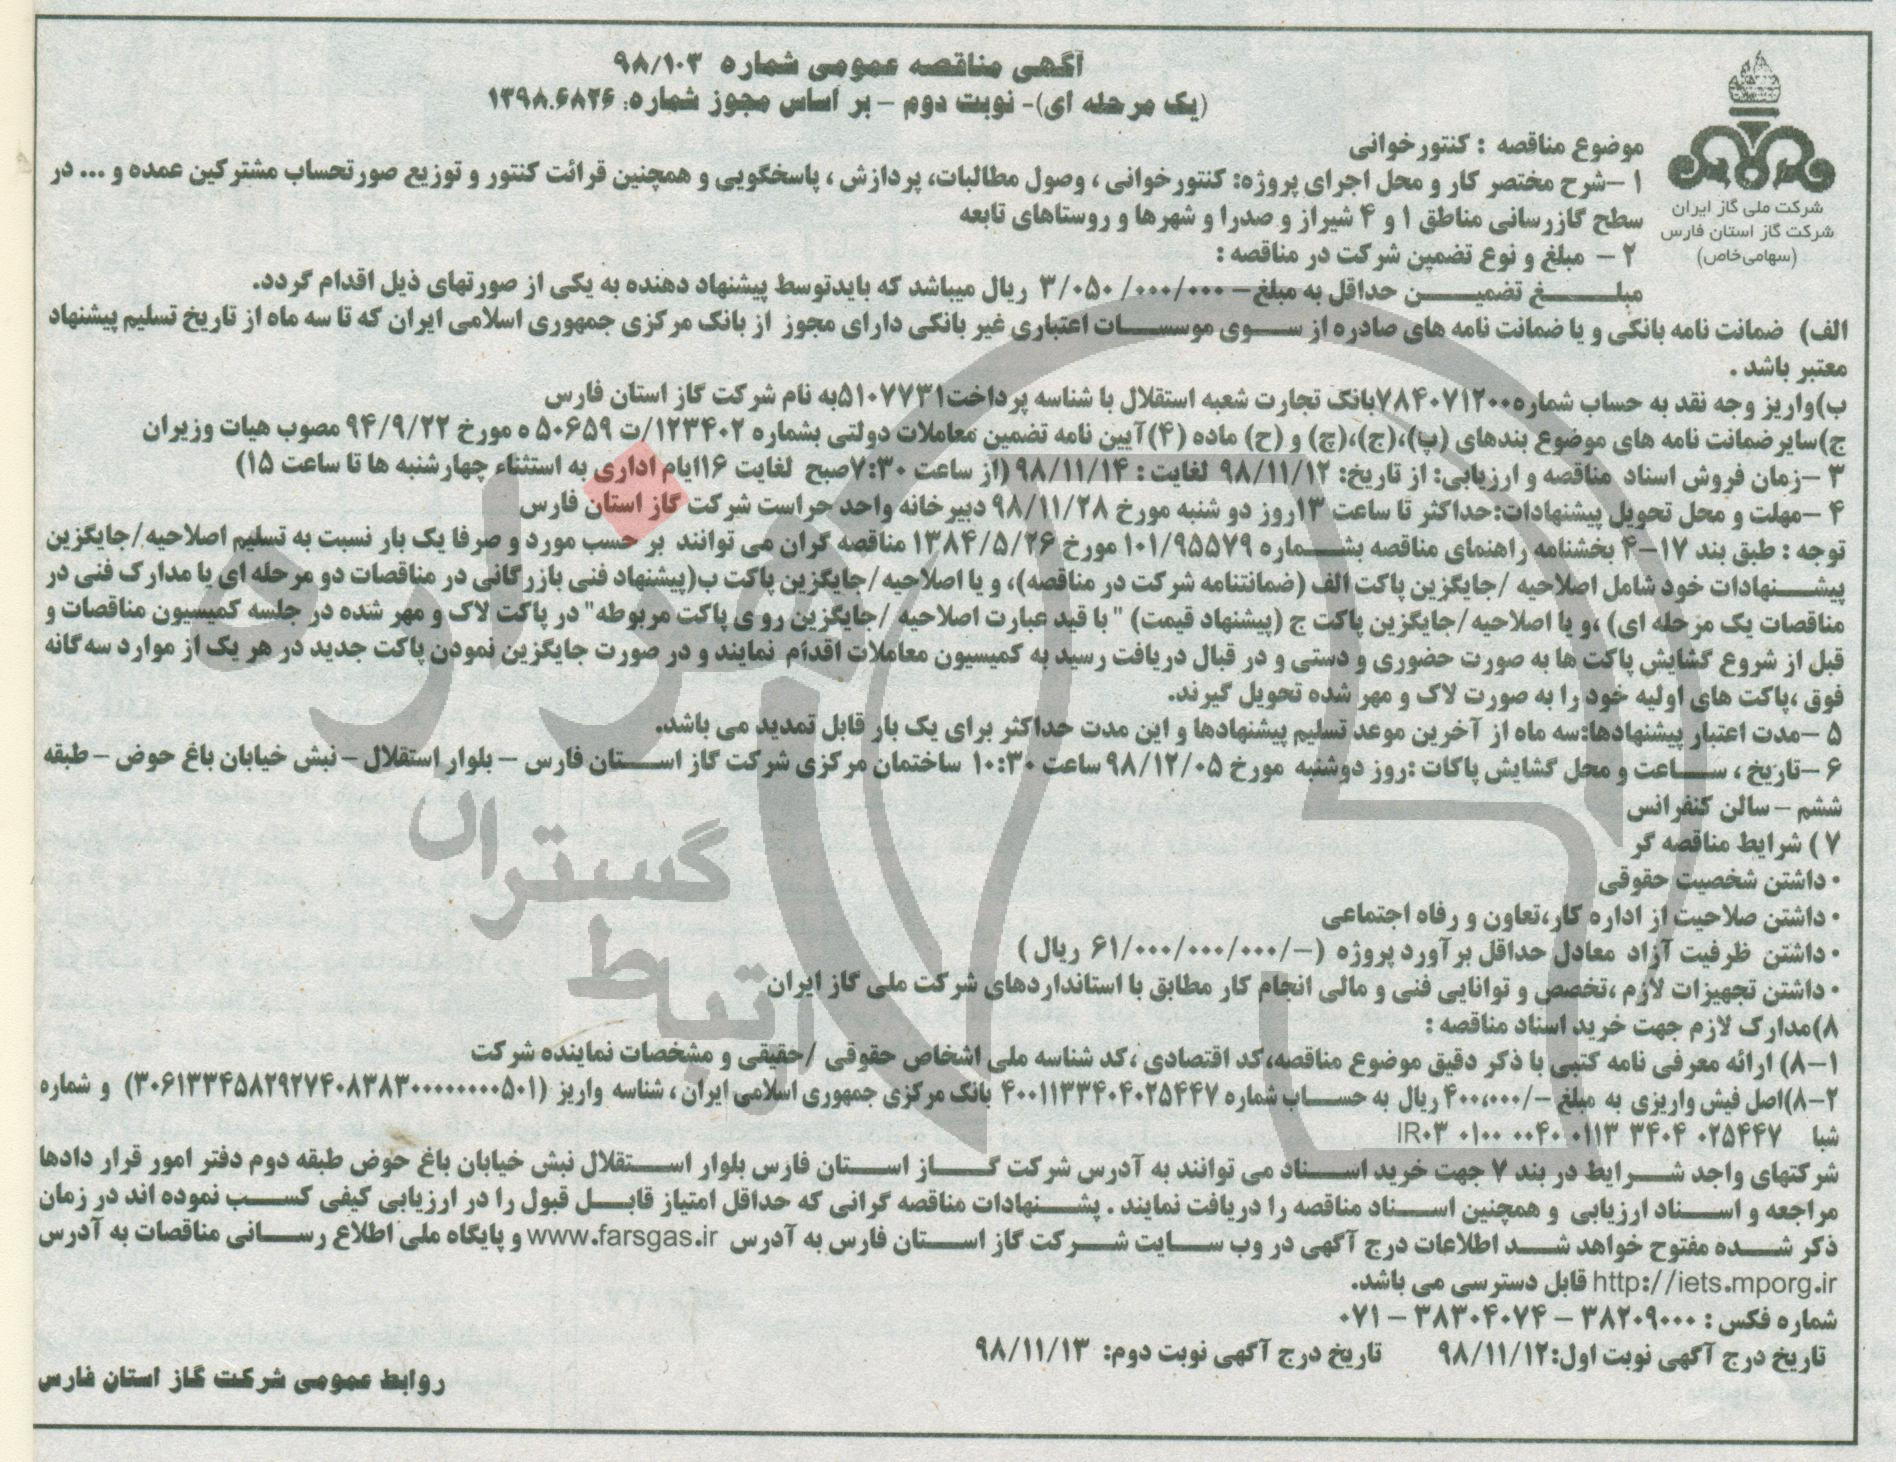 آگهی مناقصه عمومی شماره ۹۸/۱۰۳
(یک مرحله ای)- نوبت دوم – بر اساس مجوز شماره: ۱۳۹۸.۶۸۲۶
شرکت ملی گاز ایران
شرکت گاز استان فارس
(سهامی خاص)
موضوع مناقصه : کنتورخوانی
۱ –شرح مختصر کار و محل اجرای پروژه: کنتورخوانی ، وصول مطالبات، پردازش ، پاسخگویی و همچنین قرائت کنتور و توزیع صورتحساب مشترکین عمده و ... در
سطح گازرسانی مناطق ۱ و ۴ شیراز و صدرا و شهرها و روستاهای تابعه
۲ – مبلغ و نوع تضمین شرکت در مناقصه :
مبلغ تضمین حداقل به مبلغ– ۳/۰۵۰/۰۰۰/۰۰۰ ریال میباشد که بایدتوسط پیشنهاد دهنده به یکی از صورتهای ذیل اقدام گردد.
الف) ضمانت نامه بانکی و یا ضمانت نامه های صادره از سوی موسسات اعتباری غیر بانکی دارای مجوز از بانک مرکزی جمهوری اسلامی ایران که تا سه ماه از تاریخ تسلیم پیشنهاد
معتبر باشد .
ب)واریز وجه نقد به حساب شماره۷۸۴۰۷۱۲۰۰بانک تجارت شعبه استقلال با شناسه پرداخت۵۱۰۷۷۳۱به نام شرکت گاز استان فارس
ج)سایرضمانت نامه های موضوع بندهای (پ)،(ج)،(چ) و (ح) ماده (۴)آیین نامه تضمین معاملات دولتی بشماره ۱۲۳۴۰۲/ت ۵۰۶۵۹ ه مورخ ۹۴/۹/۲۲ مصوب هیات وزیران
۳ –زمان فروش اسناد مناقصه و ارزیابی: از تاریخ: ۹۸/۱۱/۱۲ لغایت : ۹۸/۱۱/۱۴ (از ساعت ۷:۳۰صبح لغایت ۱۶ایام اداری به استثناء چهارشنبه ها تا ساعت ۱۵)
۴ –مهلت و محل تحویل پیشنهادات:حداکثر تا ساعت ۱۳روز دو شنبه مورخ ۹۸/۱۱/۲۸ دبیرخانه واحد حراست شرکت گاز استان فارس
توجه : طبق بند ۱۷–۴ بخشنامه راهنمای مناقصه بشماره ۱۰۱/۹۵۵۷۹ مورخ ۱۳۸۴/۵/۲۶ مناقصه گران می توانند بر حسب مورد و صرفا یک بار نسبت به تسلیم اصلاحیه/جایگزین
پیشنهادات خود شامل اصلاحیه /جایگزین پاکت الف (ضمانتنامه شرکت در مناقصه)، و یا اصلاحیه/جایگزین پاکت ب(پیشنهاد فنی بازرگانی در مناقصات دو مرحله ای یا مدارک فنی در
مناقصات یک مرحله ای) ،و یا اصلاحیه/جایگزین پاکت ج (پیشنهاد قیمت) "با قید عبارت اصلاحیه /جایگزین رو ی پاکت مربوطه" در پاکت لاک و مهر شده در جلسه کمیسیون مناقصات و
قبل از شروع گشایش پاکت ها به صورت حضوری و دستی و در قبال دریافت رسید به کمیسیون معاملات اقدام نمایند و در صورت جایگزین نمودن پاکت جدید در هر یک از موارد سه گانه
فوق ،پاکت های اولیه خود را به صورت لاک و مهر شده تحویل گیرند.
۵ –مدت اعتبار پیشنهادها:سه ماه از آخرین موعد تسلیم پیشنهادها و این مدت حداکثر برای یک بار قابل تمدید می باشد.
۶ –تاریخ ، ساعت و محل گشایش پاکات :روز دوشنبه مورخ ۹۸/۱۲/۰۵ ساعت ۱۰:۳۰ ساختمان مرکزی شرکت گاز استان فارس – بلوار استقلال – نبش خیابان باغ حوض – طبقه
ششم – سالن کنفرانس
۷ ) شرایط مناقصه گر
• داشتن شخصیت حقوقی
• داشتن صلاحیت از اداره کار،تعاون و رفاه اجتماعی
• داشتن ظرفیت آزاد معادل حداقل برآورد پروژه (–/۶۱/۰۰۰/۰۰۰/۰۰۰ ریال )
• داشتن تجهیزات لازم ،تخصص و توانایی فنی و مالی انجام کار مطابق با استانداردهای شرکت ملی گاز ایران
۸)مدارک لازم جهت خرید اسناد مناقصه :
۸–۱) ارائه معرفی نامه کتبی با ذکر دقیق موضوع مناقصه،کد اقتصادی ،کد شناسه ملی اشخاص حقوقی /حقیقی و مشخصات نماینده شرکت
۸–۲)اصل فیش واریزی به مبلغ –/۴۰۰،۰۰۰ ریال به حساب شماره ۴۰۰۱۱۳۳۴۰۴۰۲۵۴۴۷ بانک مرکزی جمهوری اسلامی ایران ، شناسه واریز (۳۰۶۱۳۳۴۵۸۲۹۲۷۴۰۸۳۸۳۰۰۰۰۰۰۰۰۰۵۰۱) و شماره
شبا IR۰۳ ۰۱۰۰ ۰۰۴۰ ۰۱۱۳ ۳۴۰۴ ۰۲۵۴۴۷
شرکتهای واجد شرایط در بند ۷ جهت خرید اسناد می توانند به آدرس شرکت گاز استان فارس بلوار استقلال نبش خیابان باغ حوض طبقه دوم دفتر امور قرار دادها
مراجعه و اسناد ارزیابی و همچنین اسناد مناقصه را دریافت نمایند . پشنهادات مناقصه گرانی که حداقل امتیاز قابل قبول را در ارزیابی کیفی کسب نموده اند در زمان
ذکر شده مفتوح خواهد شد اطلاعات درج آگهی در وب سایت شرکت گاز استان فارس به آدرس www.farsgas.ir و پایگاه ملی اطلاع رسانی مناقصات به آدرس
http://iets.mporg.ir قابل دسترسی می باشد.
شماره فکس : ۳۸۲۰۹۰۰۰ – ۳۸۳۰۴۰۷۴ – ۰۷۱
تاریخ درج آگهی نوبت اول:۹۸/۱۱/۱۲ تاریخ درج آگهی نوبت دوم: ۹۸/۱۱/۱۳
روابط عمومی شرکت گاز استان فارس
هزاره
گستران
ارتباط